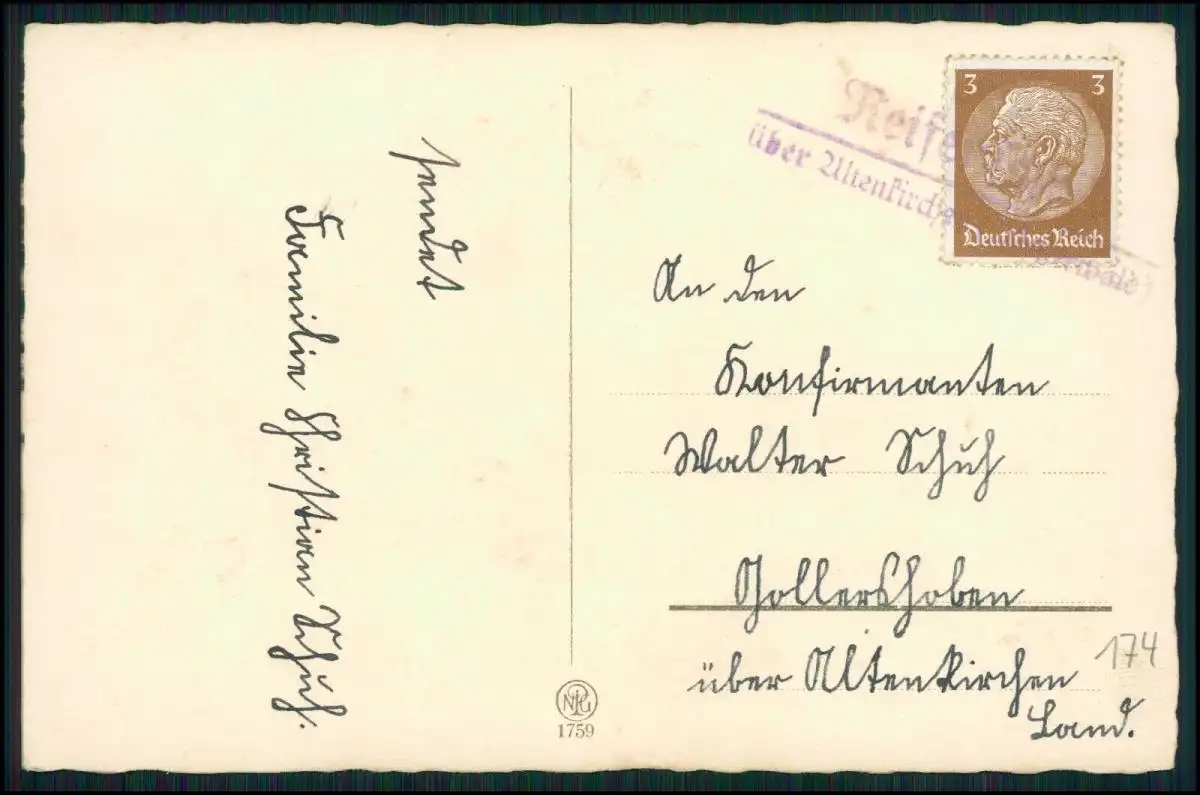 sendet
Familie Christian Schuh.
Reife
über Altenkirchen
3 3
Deutsches Reich
An den
Konfirmanten
Walter Schuh
Gollershoben
über Altenkirchen
Land.
174
NPG
1759